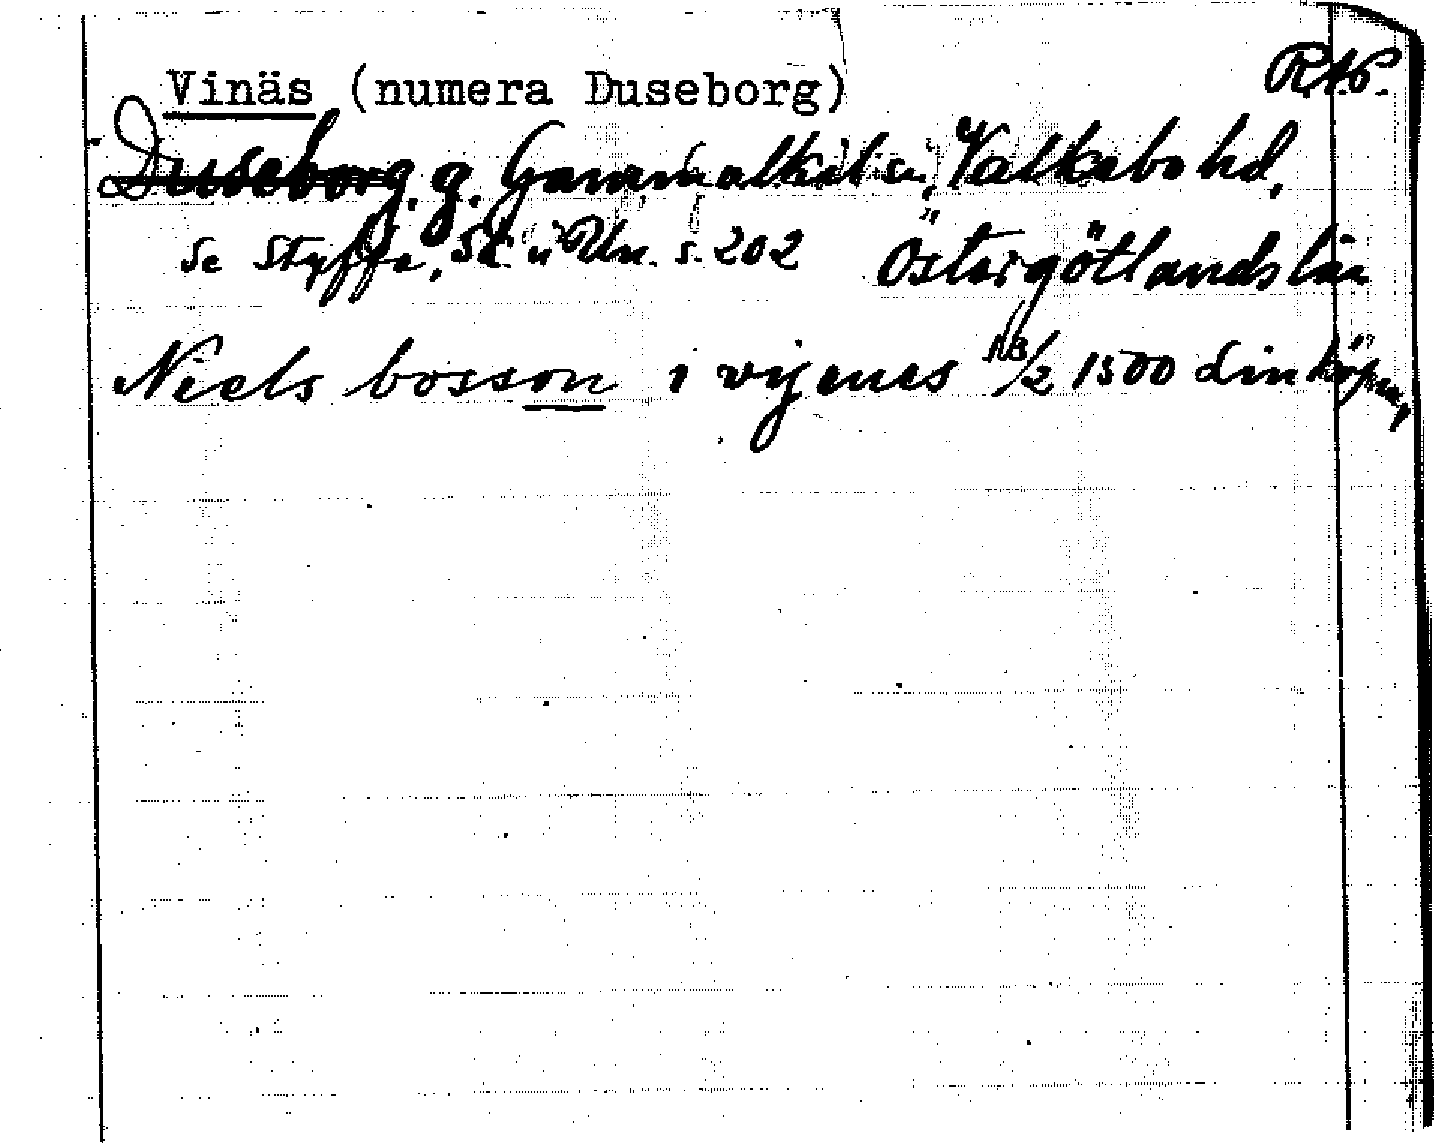 Vinäs (numera Duseborg) RAp.
Duseborg. g. Gammalkil sn, Valkebo hd,
se Styffe, Sk u Un. s. 202 Östergötlands län
Niels bosson i vijenes 18/2 1500 Linköping,